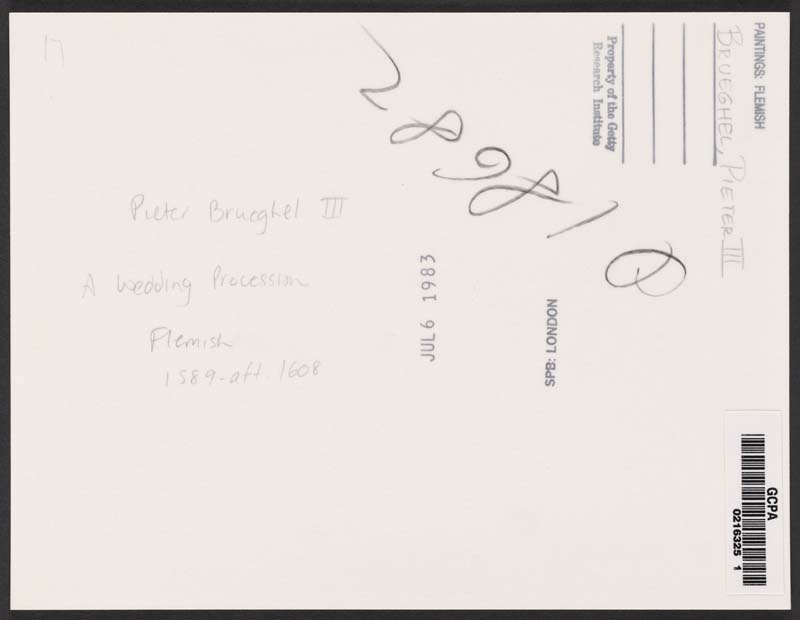 PAINTINGS: FLEMISH
BRUEGHEL, PIETER III
Property of the Getty
Research Institute
Pieter Brueghel III
A Wedding Procession
Flemish
1589-aft. 1608
JUL 6 1983
SPB: LONDON
GCPA
0216325 1